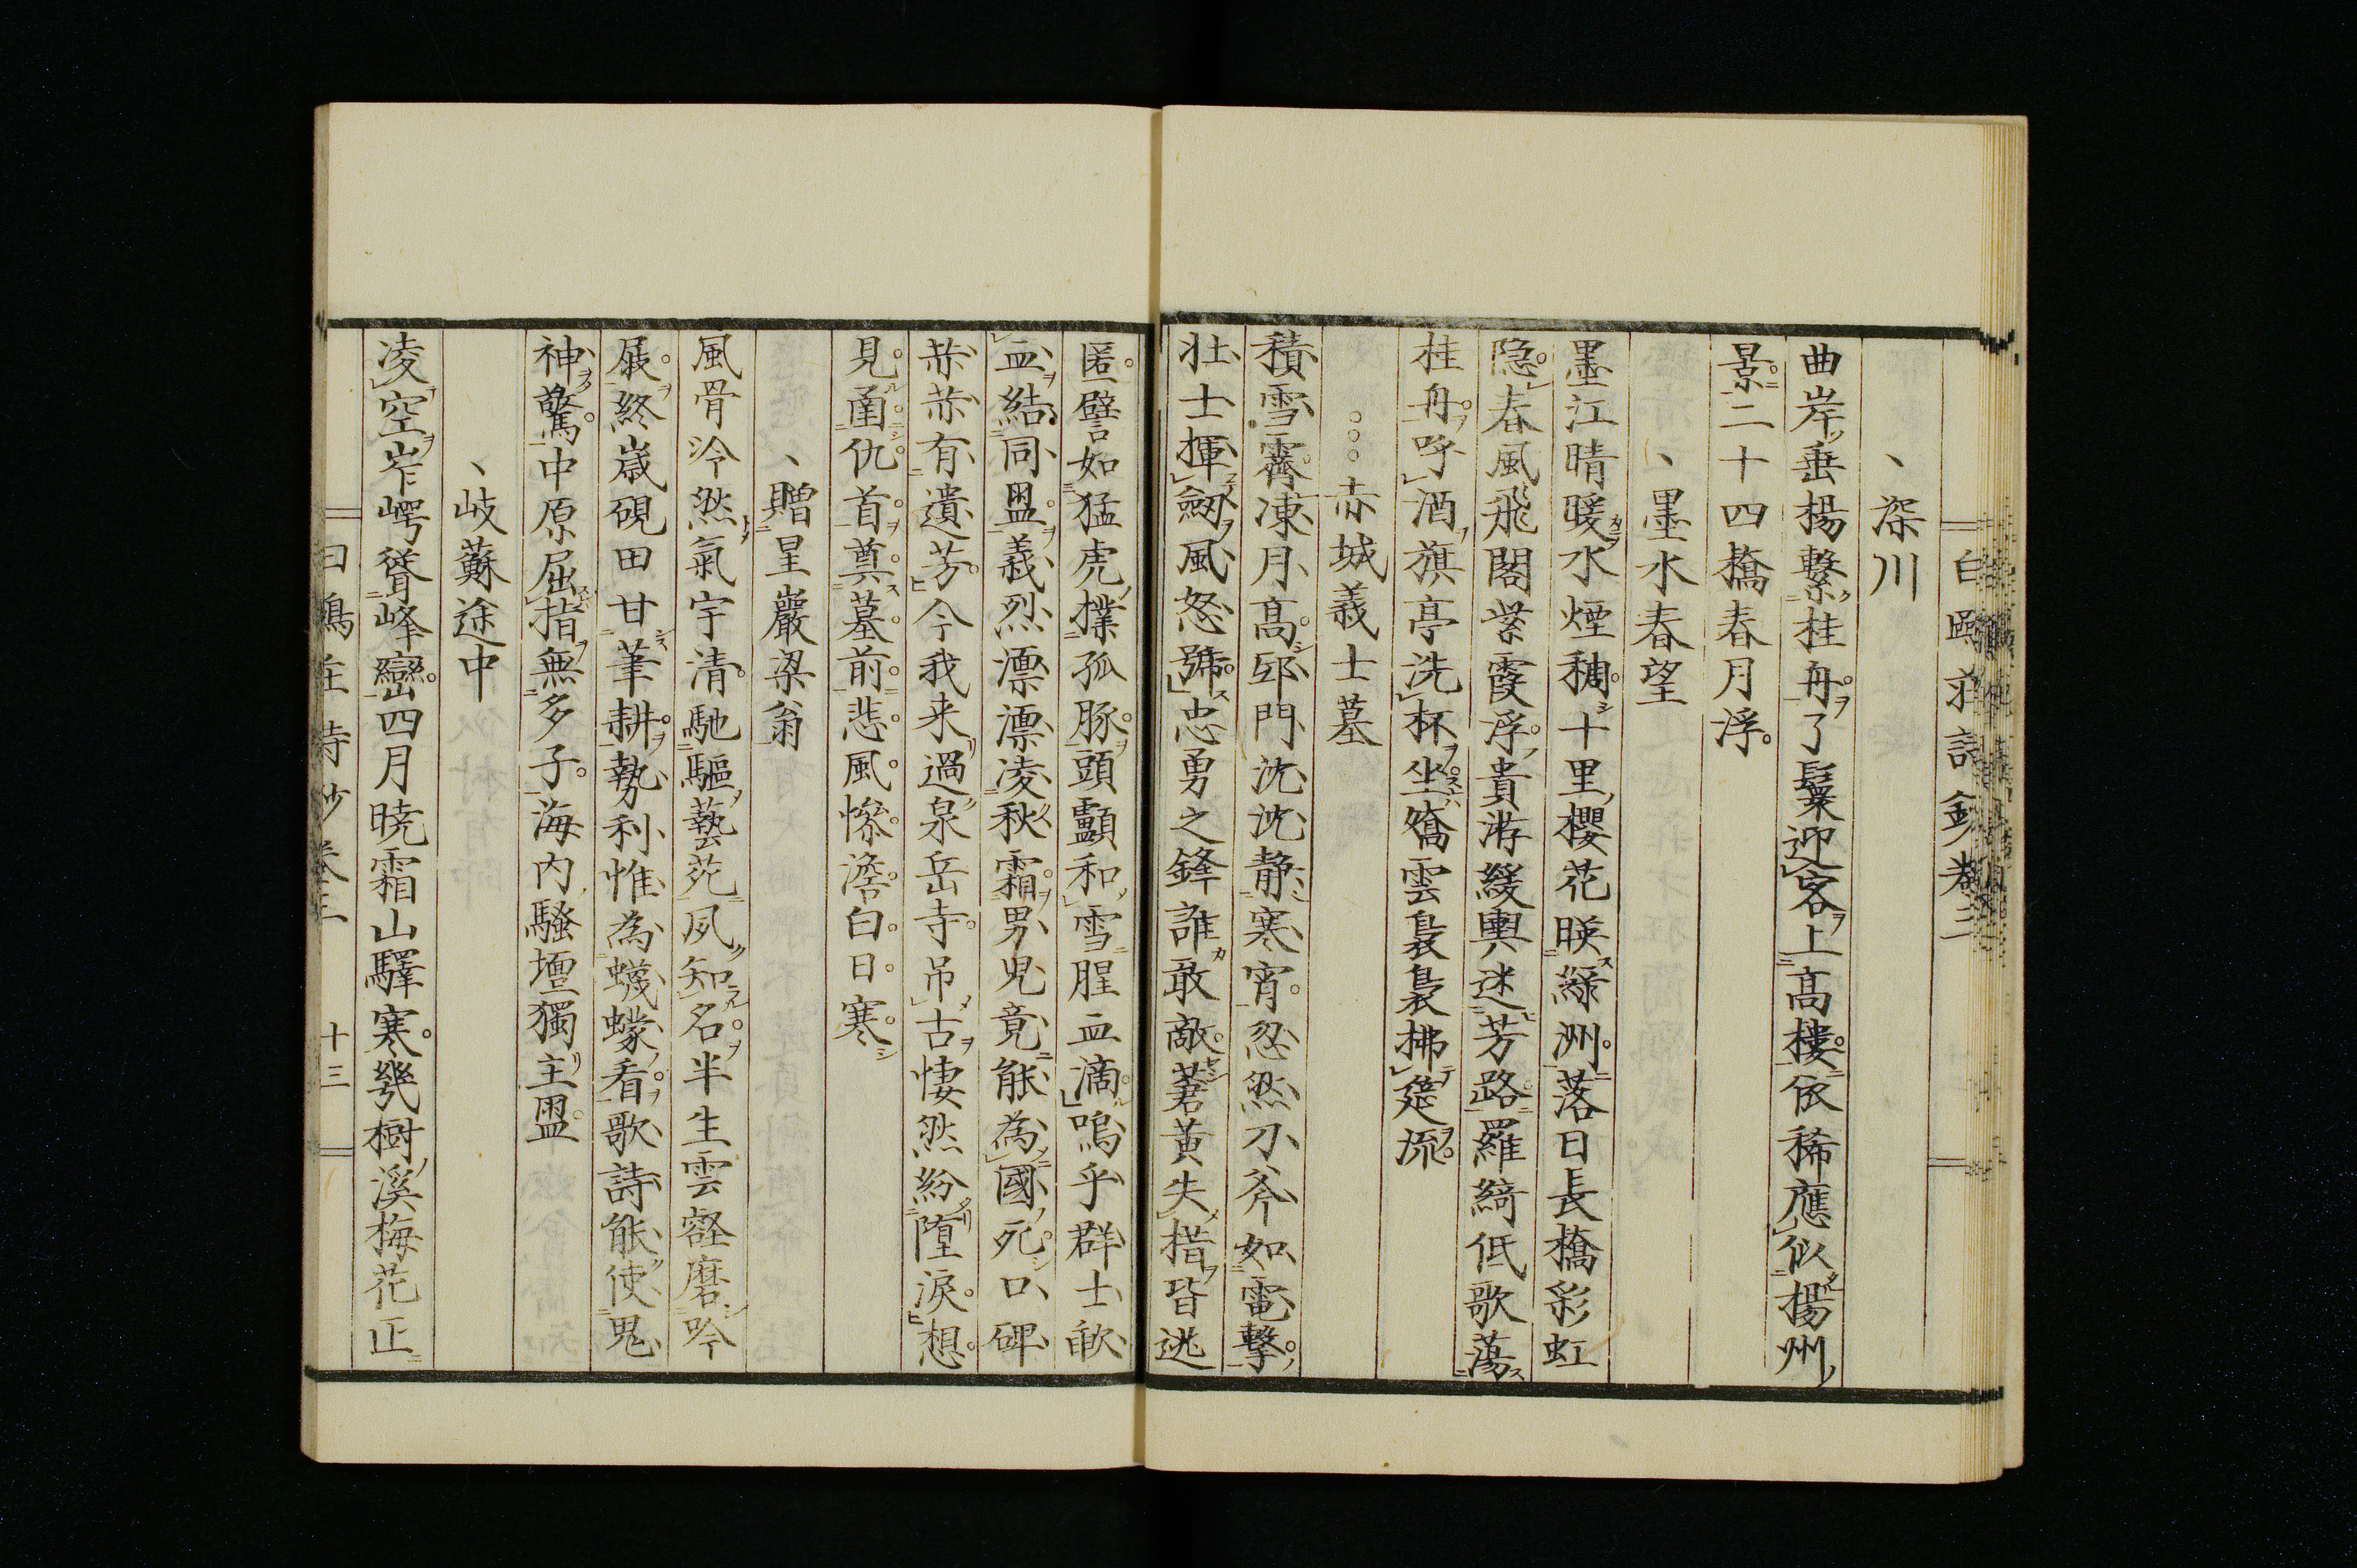 白鷗莊詩鈔卷三
深川
曲岸垂楊繫桂舟了鬟迎客上高樓依稀應似楊州
景二十四橋春月浮
墨水春望
墨江晴暖水煙稠十里櫻花暎綠洲落日長橋彩虹
隐春風飛閣紫霞浮貴游緩輿迷芳路羅綺低歌蕩
桂舟呼酒旗亭洗杯坐喬雲裊裊拂筵流
赤城義士墓
積雪霽凍月高邸門沈沈静寒宵忽然刀斧如電擊
壮士揮劔風怒號忠勇之鋒誰敢敵蒼黄失措皆逃
匿譬如猛虎撲孤豚頭顱和雪腥血滴嗚乎群士歃
血結同盟義烈凛凛凌秋霜男児竟能為國死口碑
赫赫有遺芳今我来過泉岳寺吊古悽然紛堕涙想
見函仇首奠墓前悲風惨澹白日寒
贈星巖梁翁
風骨泠然氣宇清馳驅藝苑夙知名半生雲壑磨吟
屐終歳硯田甘筆耕勢利惟為蠛蠓看歌詩能使鬼
神驚中原屈指無多子海内騷壇獨主盟
岐蘇途中
凌空岝崿聳峰巒四月暁霜山驛寒幾樹溪梅花正
十三